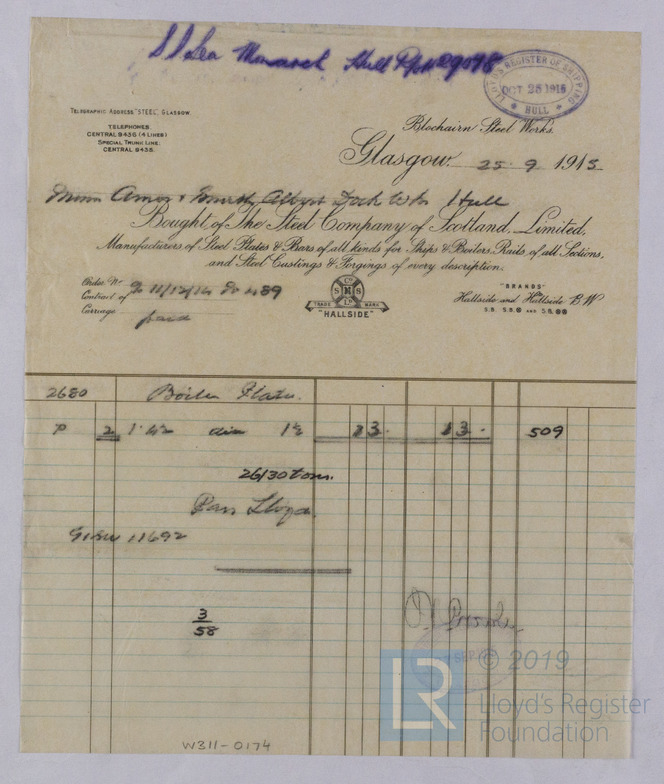 S S Sea Monarch Hull Rpt 29098
LLOYD'S REGISTER OF SHIPPING
OCT 26 1915
HULL
TELEGRAPHIC ADDRESS "STEEL" GLASGOW
TELEPHONES
CENTRAL 9436 (4 LINES)
SPECIAL TRUNK LINE
CENTRAL 9438.
Blochairn Steel Works.
Glasgow 25 9 1915
Amos & Smith, Albert Dock Wks Hull
Bought of The Steel Company of Scotland, Limited,
Manufacturers of Steel Plates & Bars of all kinds for Ships & Boilers, Rails of all Sections,
and Steel Castings & Forgings of every description.
Order No
Contract of 11/12/14
Carriage paid
TRADE MARK
"HALLSIDE"
"BRANDS"
Hallside and Hallside B.W
2680 Boiler Plates.
P 2 dia 1½ 13 · 13 · 509
26/30 tons.
Pass Lloyds.
11692
3
58
© 2019
LR Lloyd's Register
Foundation
W311-0174